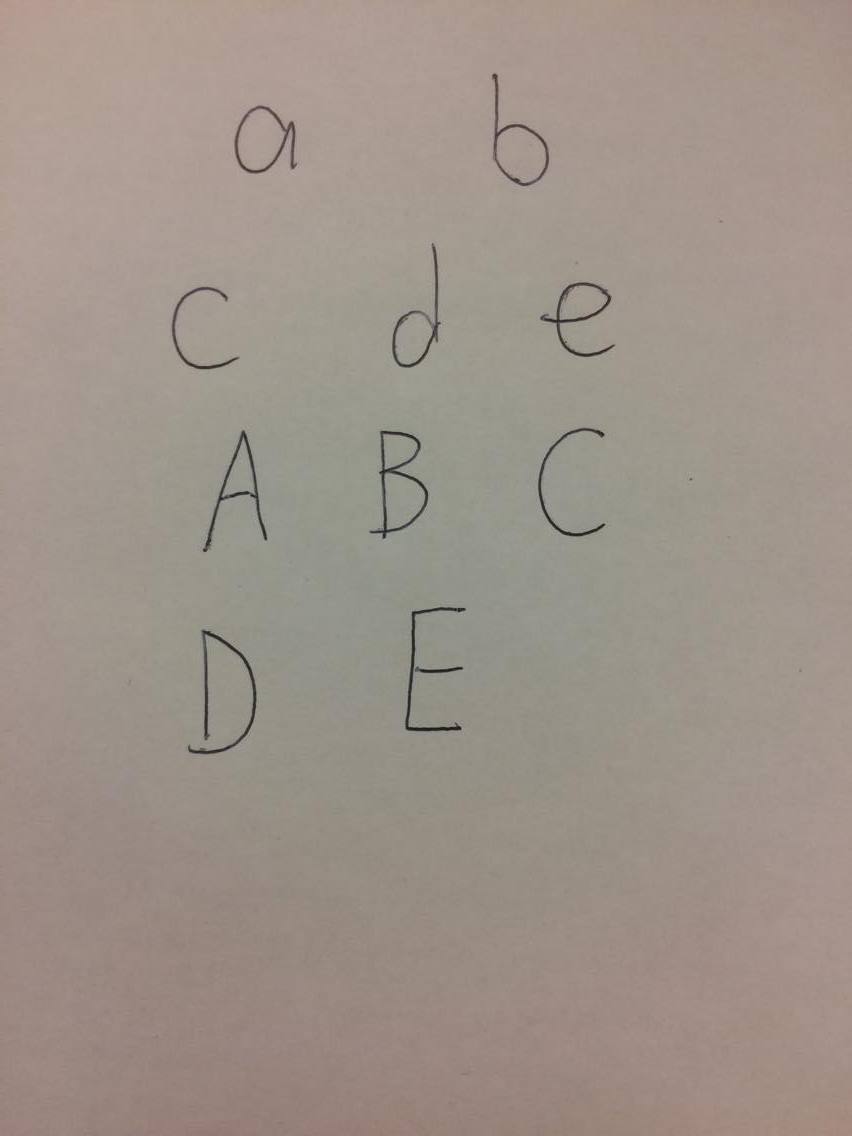 a b
c d e
A B C
D E